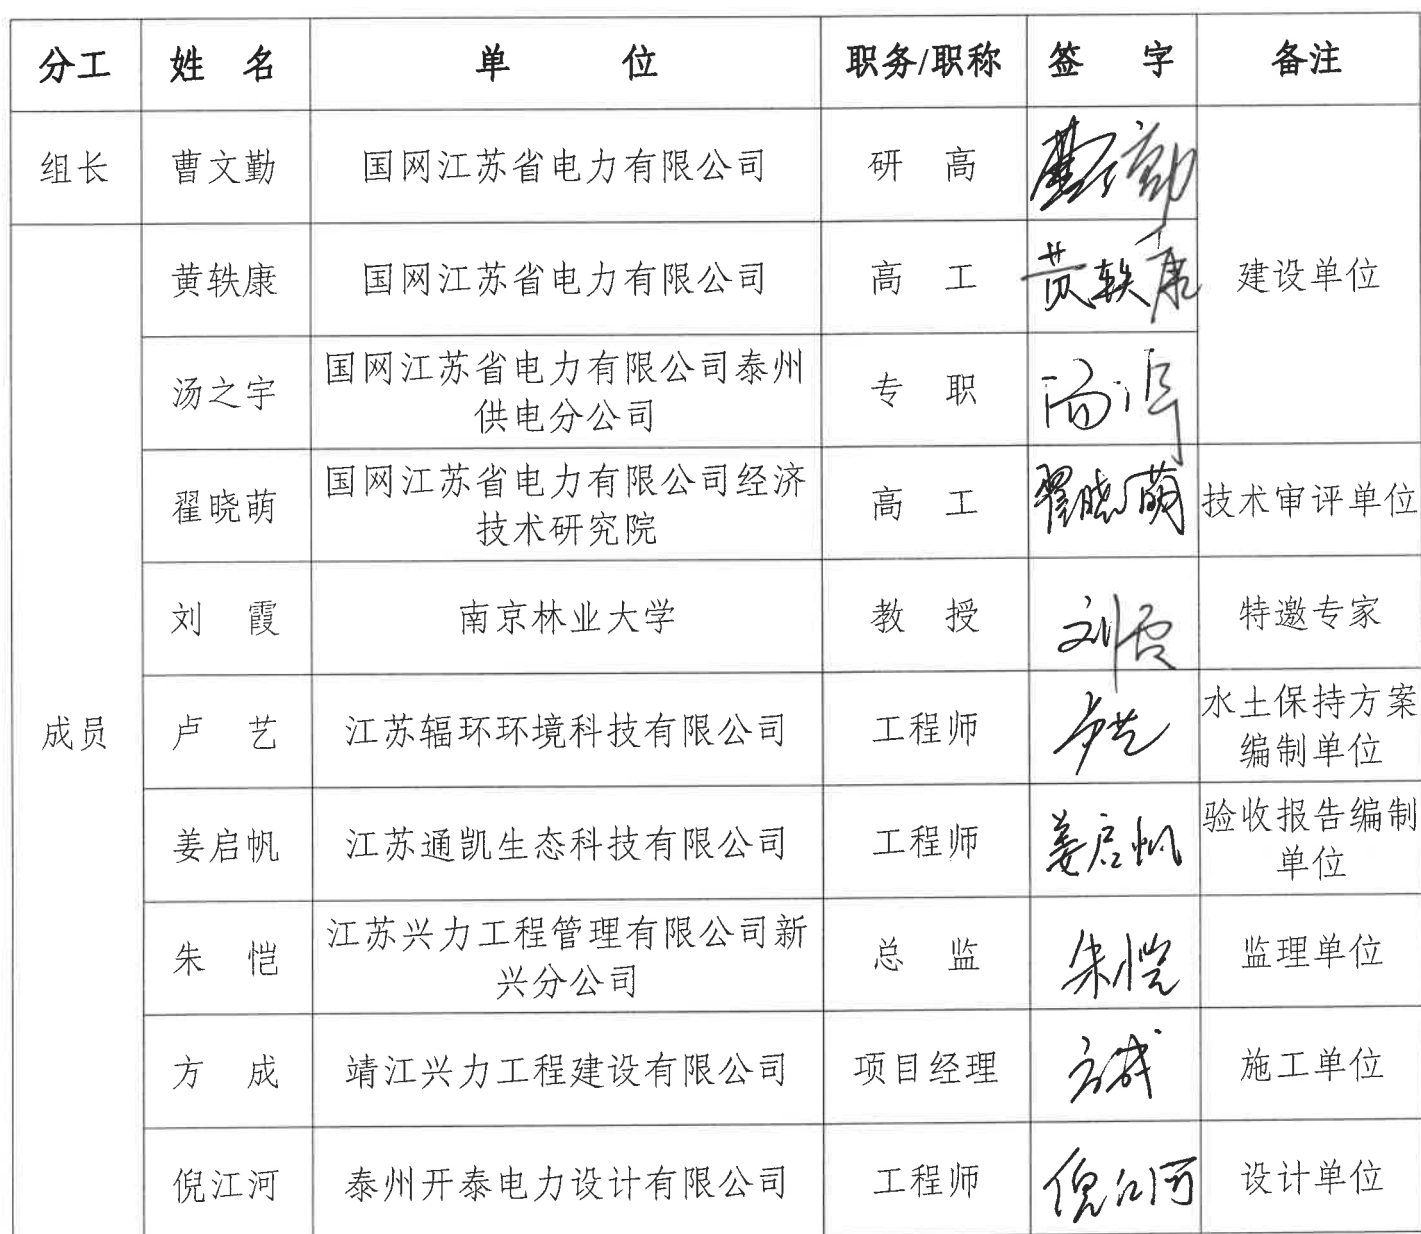 分工 姓 名 单 位 职务/职称 签 字 备注
组长 曹文勤 国网江苏省电力有限公司 研 高
黄轶康 国网江苏省电力有限公司 高 工 黄轶康 建设单位
汤之宇 国网江苏省电力有限公司泰州
供电分公司 专 职
翟晓萌 国网江苏省电力有限公司经济
技术研究院 高 工 翟晓萌 技术审评单位
刘 霞 南京林业大学 教 授 刘霞 特邀专家
成员 卢 艺 江苏辐环环境科技有限公司 工程师 卢艺 水土保持方案
编制单位
姜启帆 江苏通凯生态科技有限公司 工程师 姜启帆 验收报告编制
单位
朱 恺 江苏兴力工程管理有限公司新
兴分公司 总 监 朱恺 监理单位
方 成 靖江兴力工程建设有限公司 项目经理 方成 施工单位
倪江河 泰州开泰电力设计有限公司 工程师 倪江河 设计单位